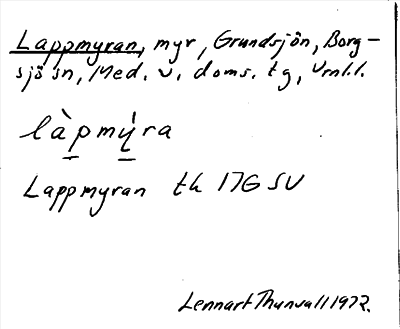 Lappmyran, myr, Grundsjön, Borg-
sjö sn, Med. v. doms. tg, Vrnl.l.
làpmýra
Lappmyran tk 17G SV
Lennart Thunvall 1972.